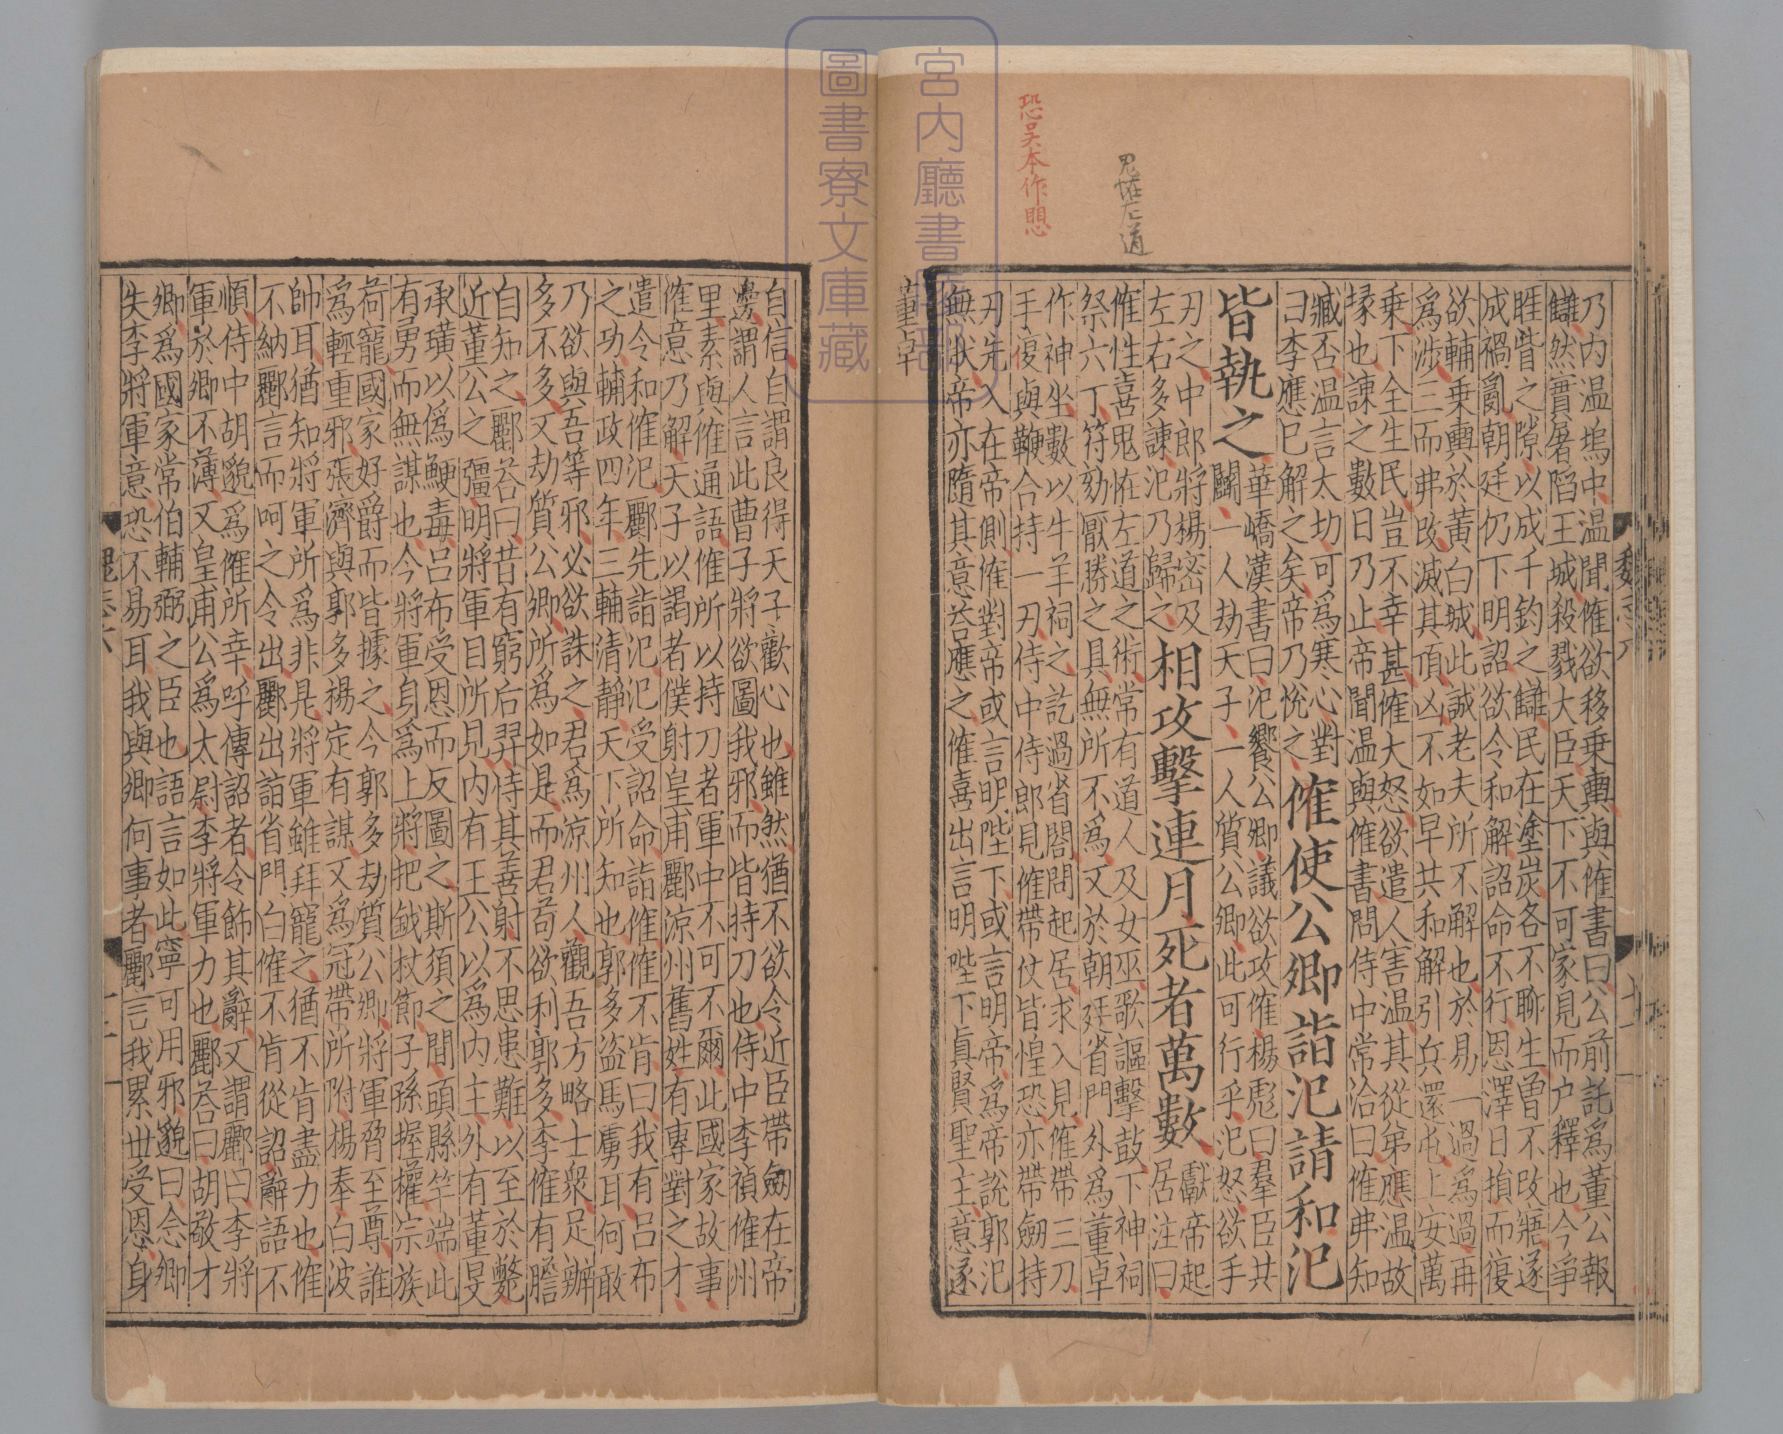 宮内廳書陵部
圖書寮文庫藏
鬼怪左道
恐吳本作愳
董卓
乃内温塢中温聞傕欲移乗輿與傕書曰公前託爲董公報
讎然實暑陷王城殺戮大臣天下不可家見而户釋也今爭
睚眥之隙以成千鈞之讎民在塗炭各不聊生曾不改寤遂
成禍亂朝廷仍下明詔欲令和解詔命不行恩澤日損而復
欲輔乗輿於黃白城此誠老夫所不解也於易一過爲過再
爲涉三而弗改滅其頂凶不如早共和解引兵還屯上安萬
乗下全生民豈不幸甚傕大怒欲遣人害温其從弟應温故
掾也諫之數日乃止帝聞温與傕書問侍中常洽曰傕弗知
臧否温言太切可爲寒心對
曰李應已解之矣帝乃悅之
傕使公卿詣汜請和汜
皆執之
華嶠漢書曰汜饗公卿議欲攻傕楊彪曰羣臣共
鬭一人劫天子一人質公卿此可行乎汜怒欲手
刃之中郎將楊密及
左右多諫汜乃歸之
相攻擊連月死者萬數
獻帝起
居注曰
傕性喜鬼怪左道之術常有道人及女巫歌謳擊鼓下神祠
祭六丁符劾厭勝之具無所不爲又於朝廷省門外爲董卓
作神坐數以牛羊祠之訖過省閤問起居求入見傕帶三刀
手復與鞭合持一刃侍中侍郎見傕帶仗皆惶恐亦帶劒持
刃先入在帝側傕對帝或言明陛下或言明帝爲帝說郭汜
無狀帝亦隨其意荅應之傕喜出言明陛下眞賢聖主意遂
自信自謂良得天子歡心也雖然猶不欲令近臣帶劒在帝
邊謂人言此曹子將欲圖我邪而皆持刀也侍中李禎傕州
里素與傕通語傕所以持刀者軍中不可不爾此國家故事
傕意乃解天子以謁者僕射皇甫酈涼州舊姓有專對之才
遣令和傕汜酈先詣汜汜受詔命詣傕傕不肯曰我有呂布
之功輔政四年三輔清靜天下所知也郭多盗馬虜耳何敢
乃欲與吾等邪必欲誅之君爲涼州人觀吾方略士衆足辦
多不多又劫質公卿所爲如是而君苟欲利郭多李傕有膽
自知之酈荅曰昔有窮后羿恃其善射不思患難以至於斃
近董公之彊明將軍目所見内有王公以爲内主外有董旻
承璜以爲鯁毒呂布受恩而反圖之斯須之間頭縣竿端此
有勇而無謀也今將軍身爲上將把鉞杖節子孫握權宗族
荷寵國家好爵而皆據之今郭多劫質公卿將軍脅至尊誰
爲輕重邪張濟與郭多楊定有謀又爲冠帶所附楊奉白波
帥耳猶知將軍所爲非是將軍雖拜寵之猶不肯盡力也傕
不納酈言而呵之令出酈出詣省門白傕不肯從詔辭語不
順侍中胡邈爲傕所幸呼傳詔者令飾其辭又謂酈曰李將
軍於卿不薄又皇甫公爲太尉李將軍力也酈荅曰胡敬才
卿爲國家常伯輔弼之臣也語言如此寧可用邪邈曰念卿
失李將軍意恐不易耳我與卿何事者酈言我累世受恩身